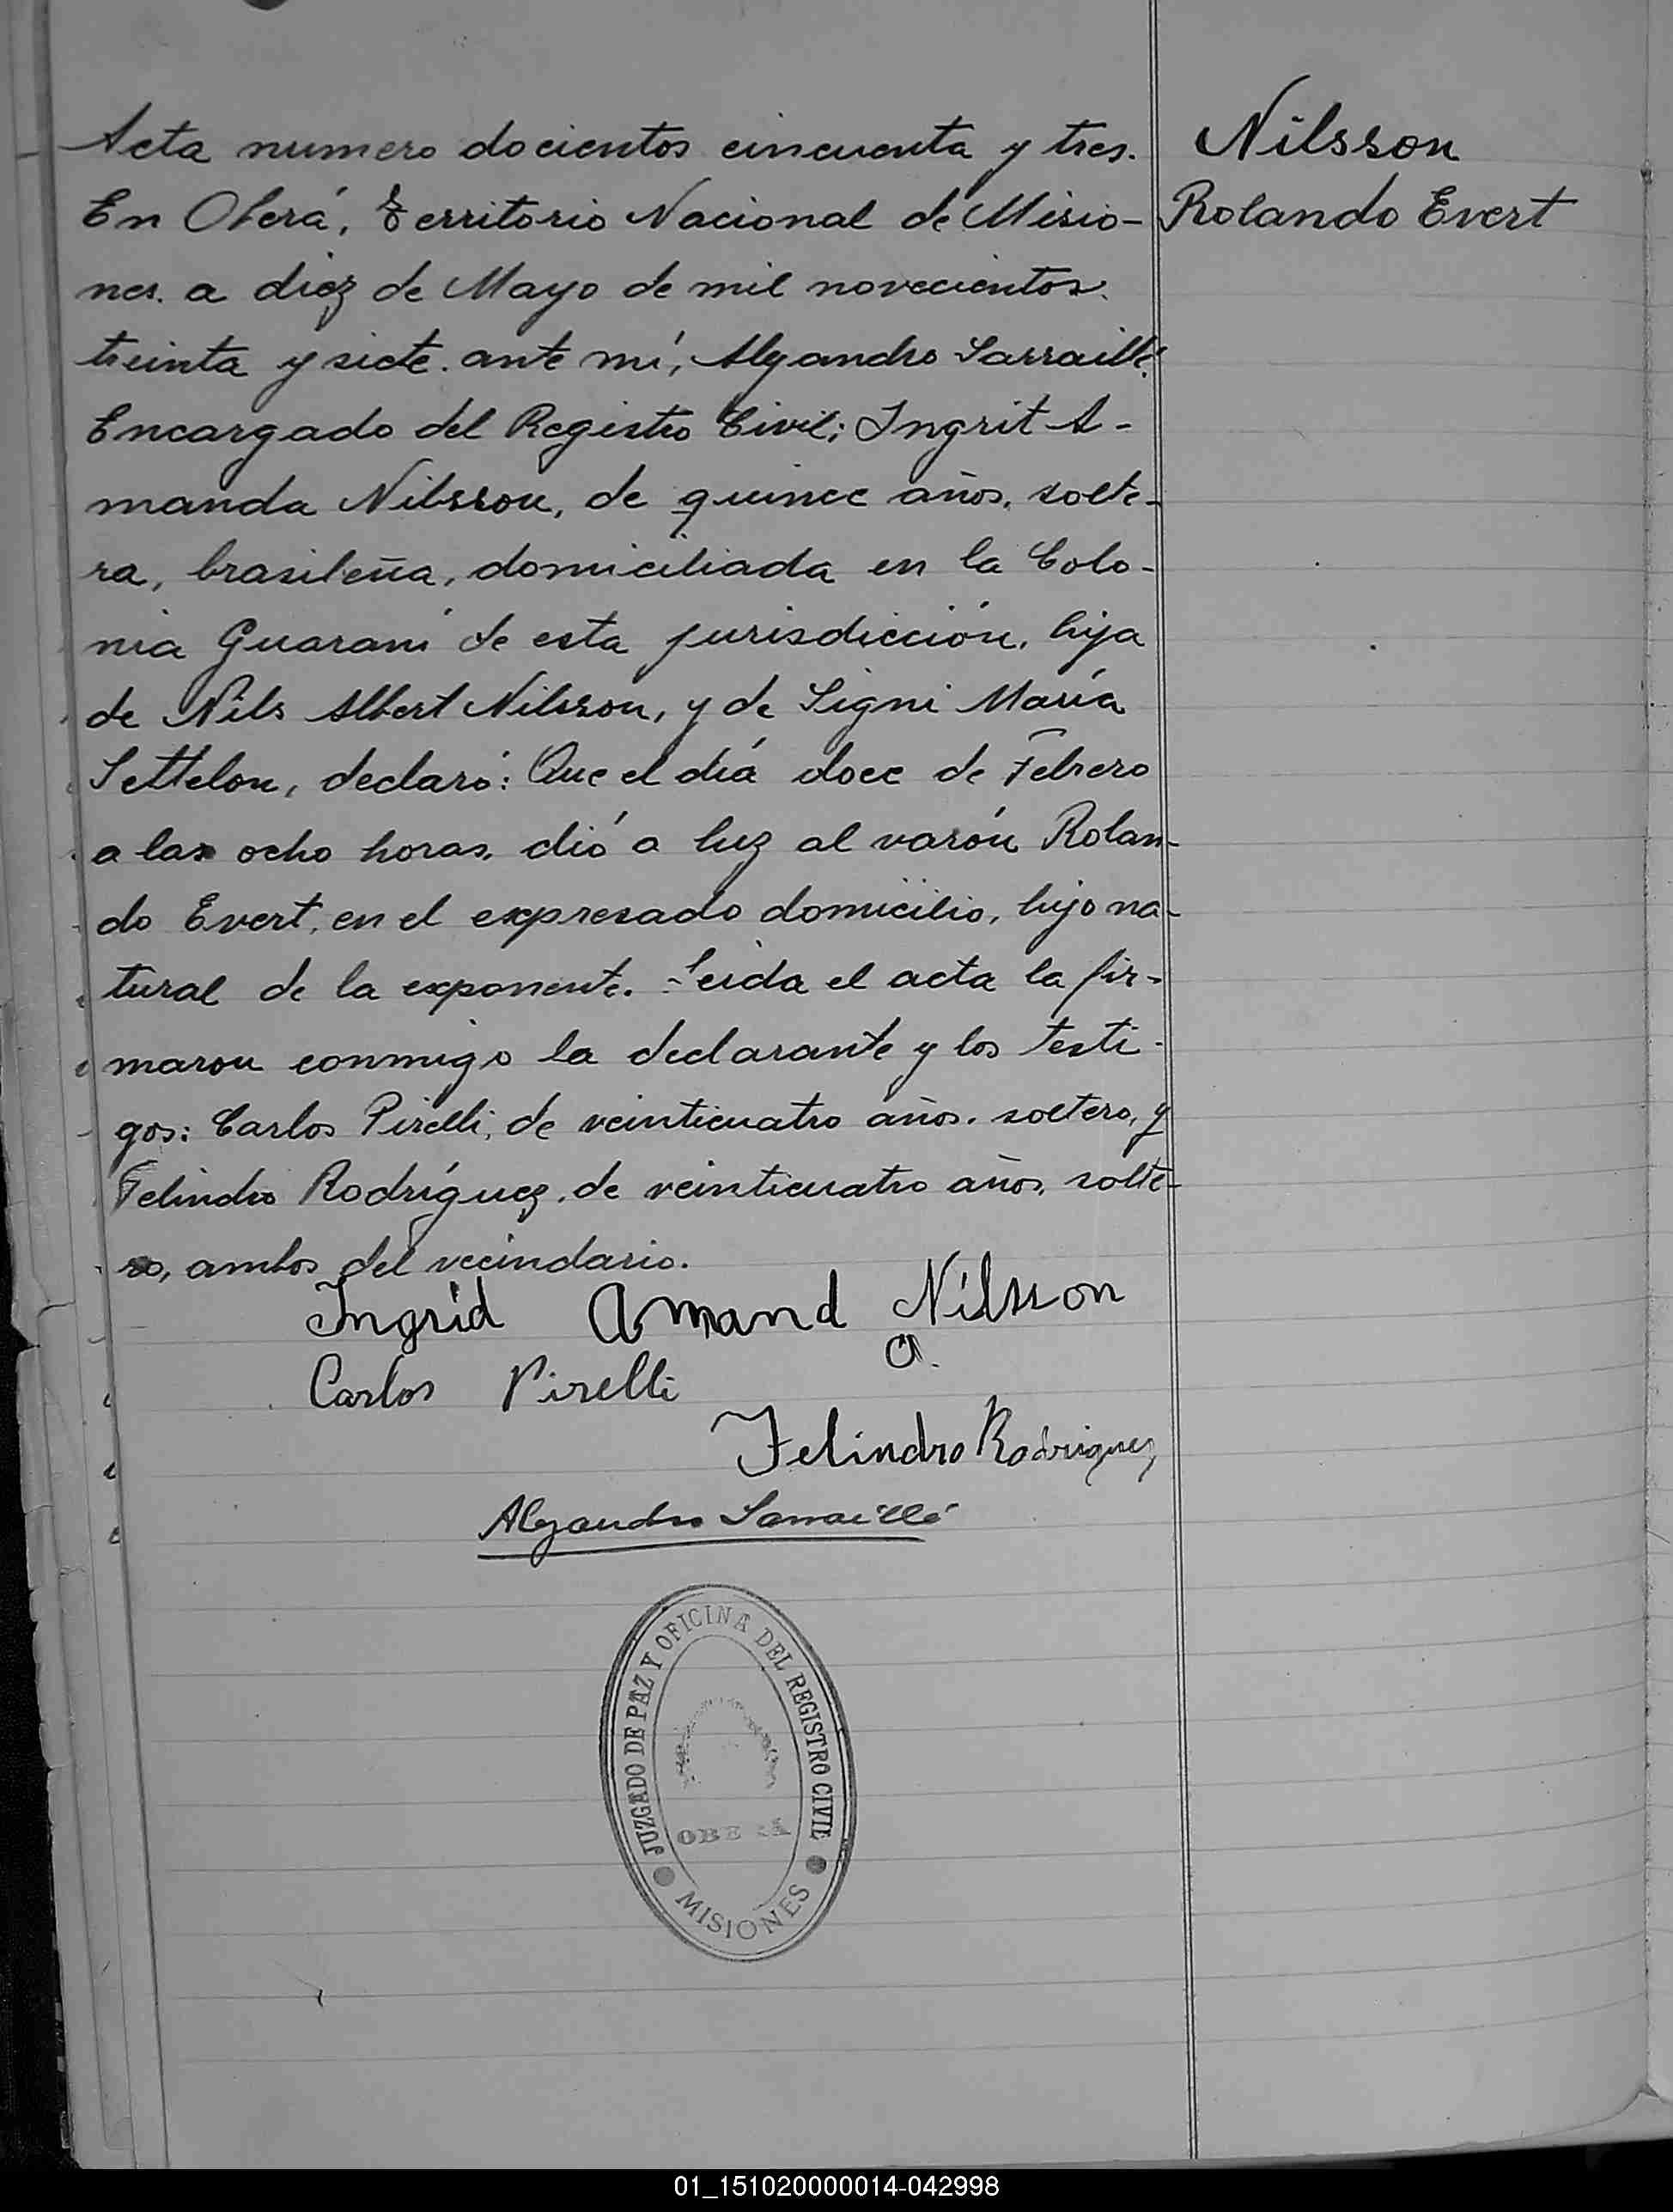 Nilsson
Rolando Evert
Acta numero docientos cincuenta y tres.
En Oberá, Territorio Nacional de Misio-
nes. a diez de Mayo de mil novecientos
treinta y siete. ante mí, Alejandro Sarraillé.
Encargado del Registro Civil; Ingrit A-
manda Nilsson, de quince años, solte-
ra, brasileña, domiciliada en la Colo-
nia Guaraní de esta jurisdicción, hija
de Nils Albert Nilsson, y de Signi María
Settelon, declaró: Que el día doce de Febrero
a las ocho horas, dió a luz al varón Rolan-
do Evert, en el expresado domicilio, hijo na-
tural de la exponente. Leida el acta la fir-
maron conmigo la declarante y los testi-
gos: Carlos Pirelli, de veinticuatro años. soltero, y
Felindro Rodríguez, de veinticuatro años, solte-
ro, ambos del vecindario.
Ingrid Amand Nilsson
a.
Carlos Pirelli
Felindro Rodriguez
Alejandro Sarraillé
JUZGADO DE PAZ Y OFICINA DEL REGISTRO CIVIL
OBERÁ
MISIONES
01_151020000014-042998